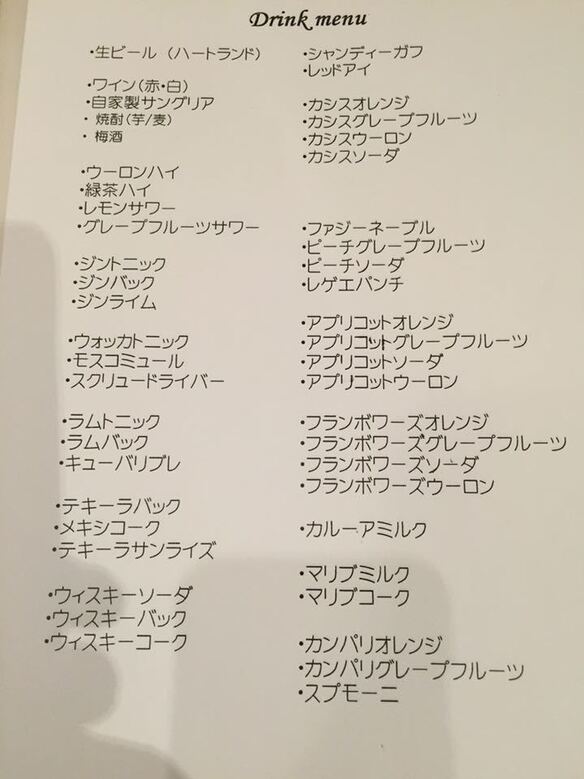 Drink menu
・生ビール (ハートランド)
・ワイン(赤・白)
・自家製サングリア
・焼酎(芋/麦)
・梅酒
・ウーロンハイ
・緑茶ハイ
・レモンサワー
・グレープフルーツサワー
・ジントニック
・ジンバック
・ジンライム
・ウォッカトニック
・モスコミュール
・スクリュードライバー
・ラムトニック
・ラムバック
・キューバリブレ
・テキーラバック
・メキシコーク
・テキーラサンライズ
・ウィスキーソーダ
・ウィスキーバック
・ウィスキーコーク
・シャンディーガフ
・レッドアイ
・カシスオレンジ
・カシスグレープフルーツ
・カシスウーロン
・カシスソーダ
・ファジーネーブル
・ピーチグレープフルーツ
・ピーチソーダ
・レゲエパンチ
・アプリコットオレンジ
・アプリコットグレープフルーツ
・アプリコットソーダ
・アプリコットウーロン
・フランボワーズオレンジ
・フランボワーズグレープフルーツ
・フランボワーズソーダ
・フランボワーズウーロン
・カルーアミルク
・マリブミルク
・マリブコーク
・カンパリオレンジ
・カンパリグレープフルーツ
・スプモーニ